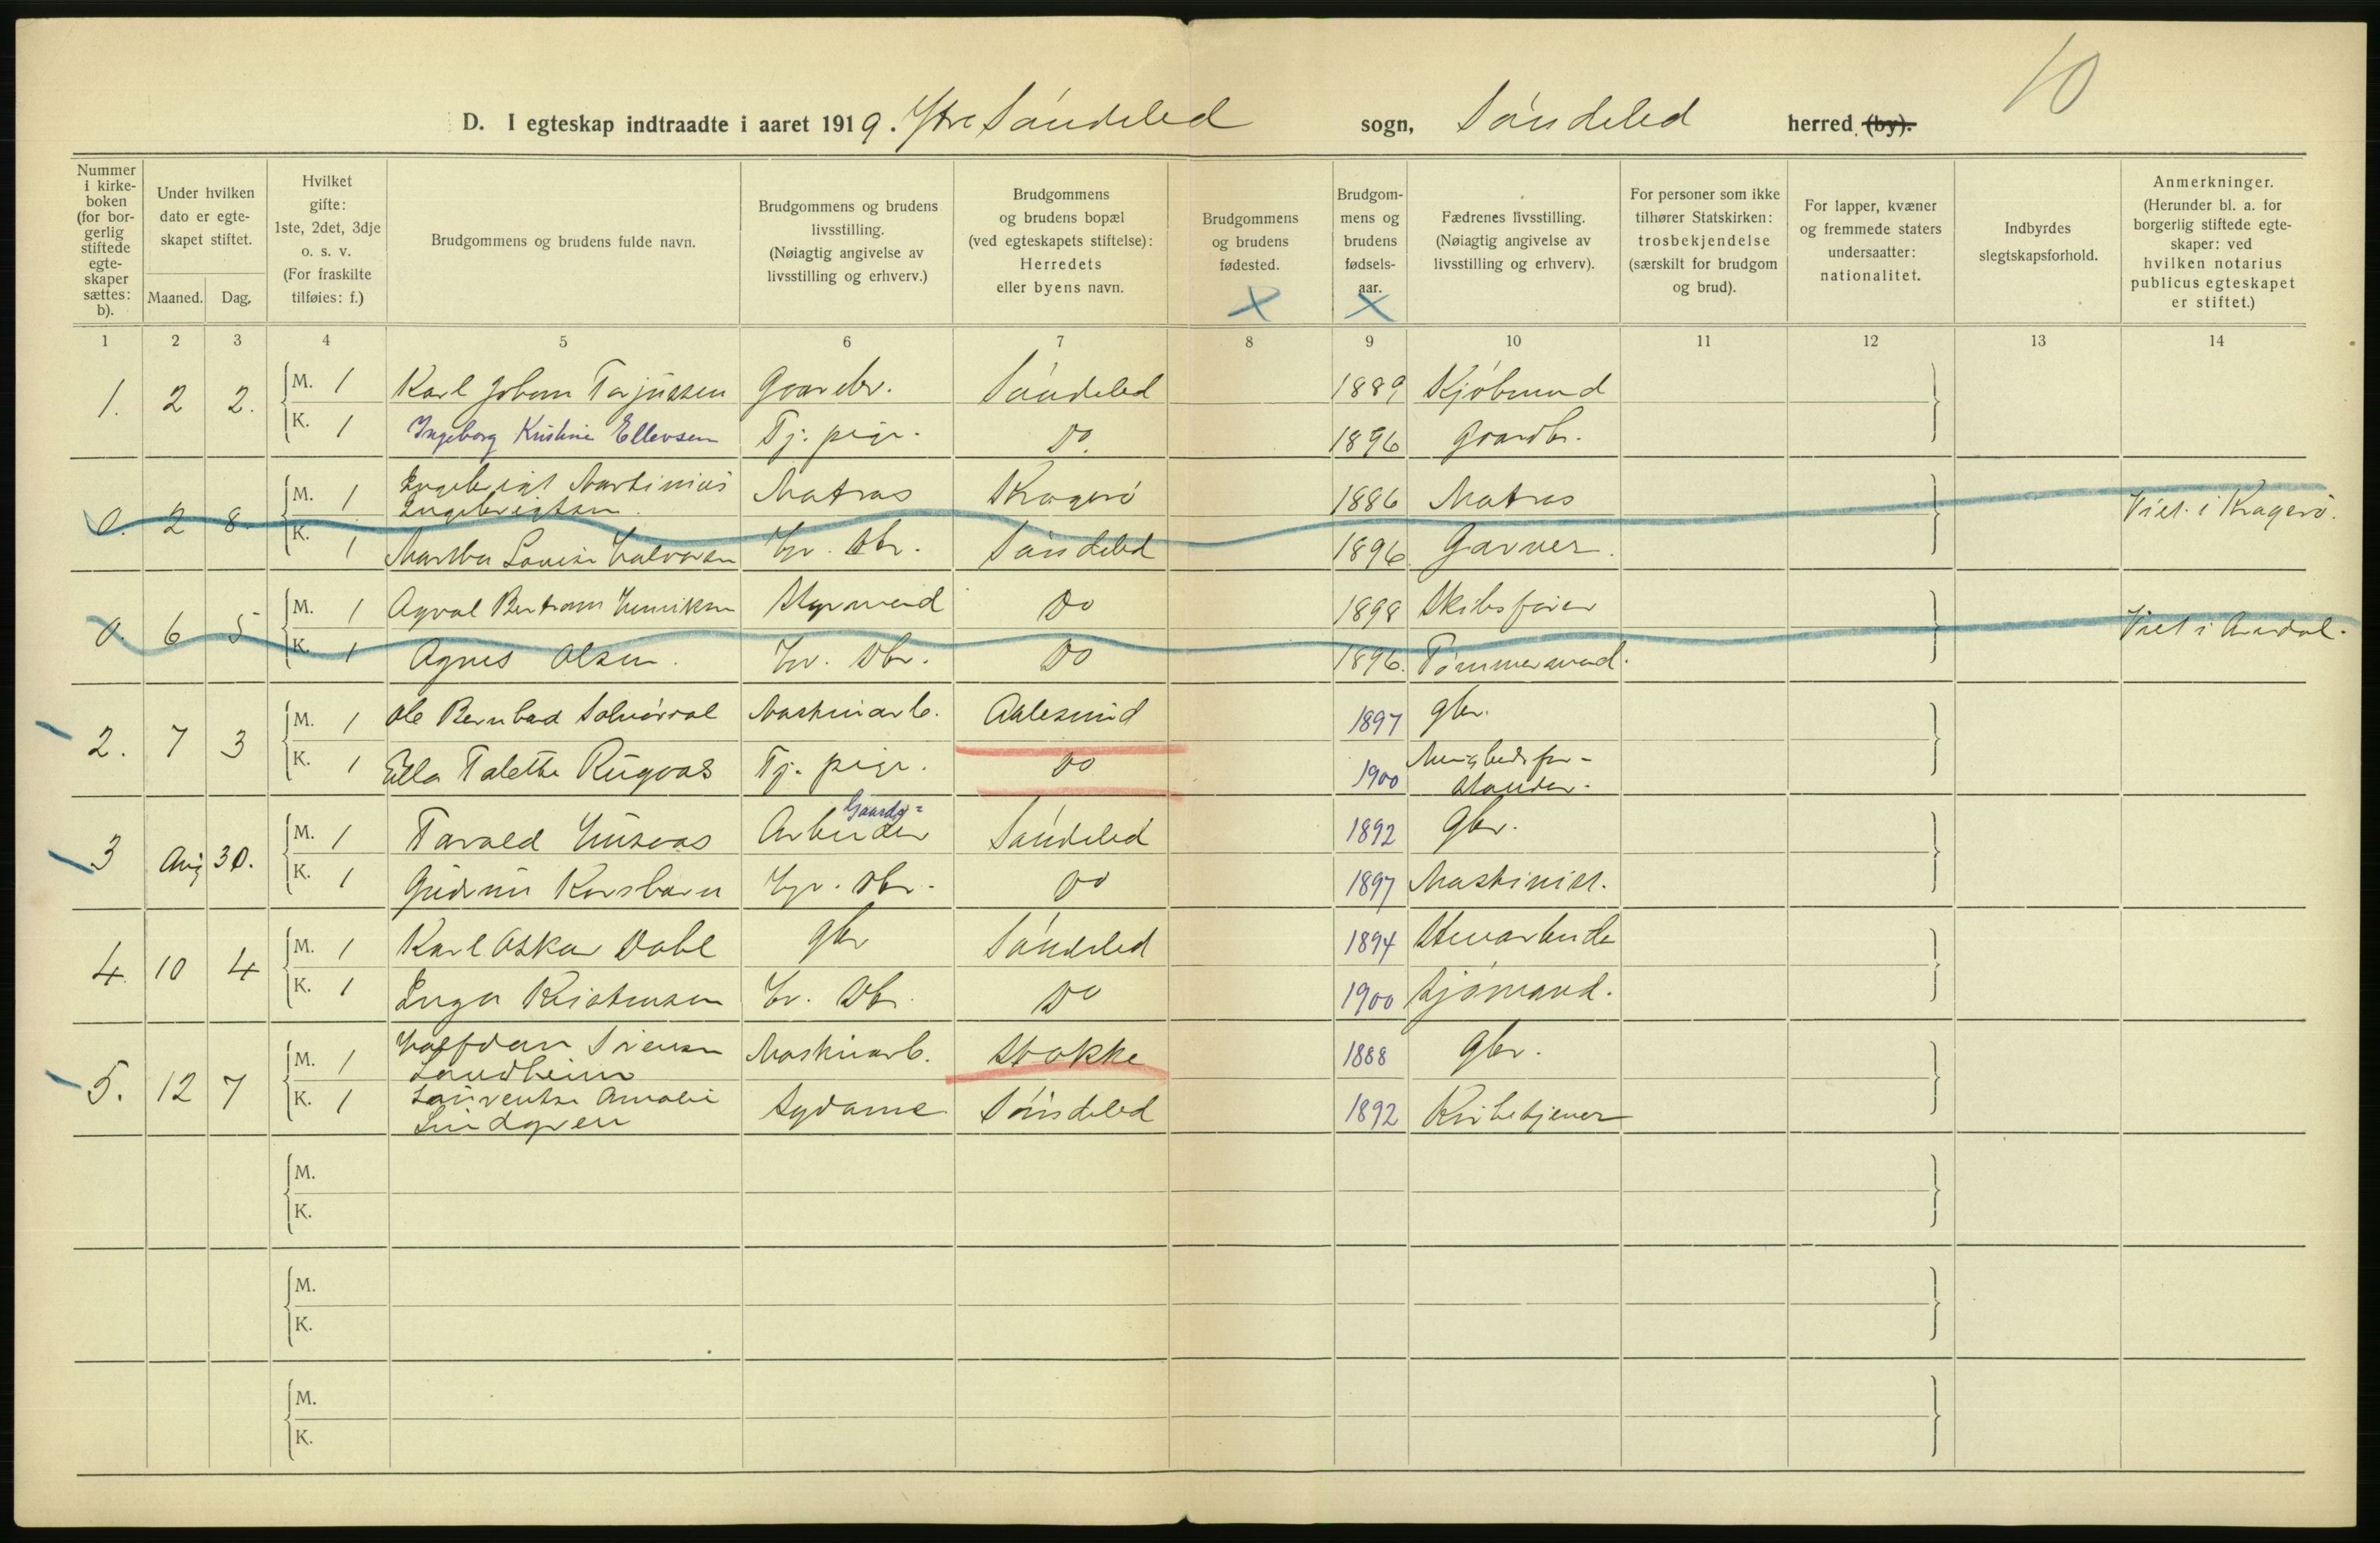 10
D. I egteskap indtraadte i aaret 1919. Ytre Söndeled sogn, Söndeled herred (by).
Nummer i kirke-boken (for bor-gerlig stiftede egte-skaper sættes: b).
Under hvilken dato er egte-skapet stiftet.
Maaned. Dag.
Hvilket gifte: 1ste, 2det, 3dje o. s. v. (For fraskilte tilføies: f.)
Brudgommens og brudens fulde navn.
Brudgommens og brudens livsstilling. (Nøiagtig angivelse av livsstilling og erhverv.)
Brudgommens og brudens bopæl (ved egteskapets stiftelse): Herredets eller byens navn.
Brudgommens og brudens fødested.
Brudgom-mens og brudens fødsels-aar.
Fædrenes livsstilling. (Nøiagtig angivelse av livsstilling og erhverv).
For personer som ikke tilhører Statskirken: trosbekjendelse (særskilt for brudgom og brud).
For lapper, kvæner og fremmede staters undersaatter: nationalitet.
Indbyrdes slegtskapsforhold.
Anmerkninger. (Herunder bl. a. for borgerlig stiftede egte-skaper: ved hvilken notarius publicus egteskapet er stiftet.)
X X
1 2 3 4 5 6 7 8 9 10 11 12 13 14
1. 2 2. M. 1 Karl Johan Terjussen Gaardbr. Söndeled 1889 Kjöbmand
K. 1 Ingeborg Kristine Ellevsen Tj. pige. Do. 1896 Gaardbr.
0. 2 8. M. 1 Ingebrigt Martinius Ingebrigtsen. Matros Kragerö 1886 Matros Viet i Kragerö.
K. 1 Martha Lovise Halvorsen Hr. Dtr. Söndeled 1896. Garver.
0. 6 5 M. 1 Agval Bertram Henriksen Styrmand Do 1898 Skibsförer Viet i Arendal.
K. 1 Agnes Olsen. Hr. Dtr. Do 1896. Tömmermand.
2. 7 3 M. 1 Ole Bernhad Solnördal Maskinarb. Aalesund 1897 gbr.
K. 1 Ella Talette Rügvas Tj. pige. Do 1900 Menighedsfor-stander.
3 Aug 30. M. 1 Tarald Husaas Gaards= Arbeider Söndeled 1892 Gbr.
K. 1 Gudrun Korsbærn Hr. Dtr. Do 1897 Maskinist.
4. 10 4 M. 1 Karl Oskar Dahl gbr Söndeled 1894 Stenarbeider
K. 1 Inga Kristensen Hr. Dtr. Do 1900 Sjömand.
5. 12 7 M. 1 Halfdan Sörensen Landheim Maskinarb. Stokke 1888 Gbr.
K. 1 Laurentze Amalie Lindgren Sydame Söndeled 1892 Kirketjener
M.
K.
M.
K.
M.
K.